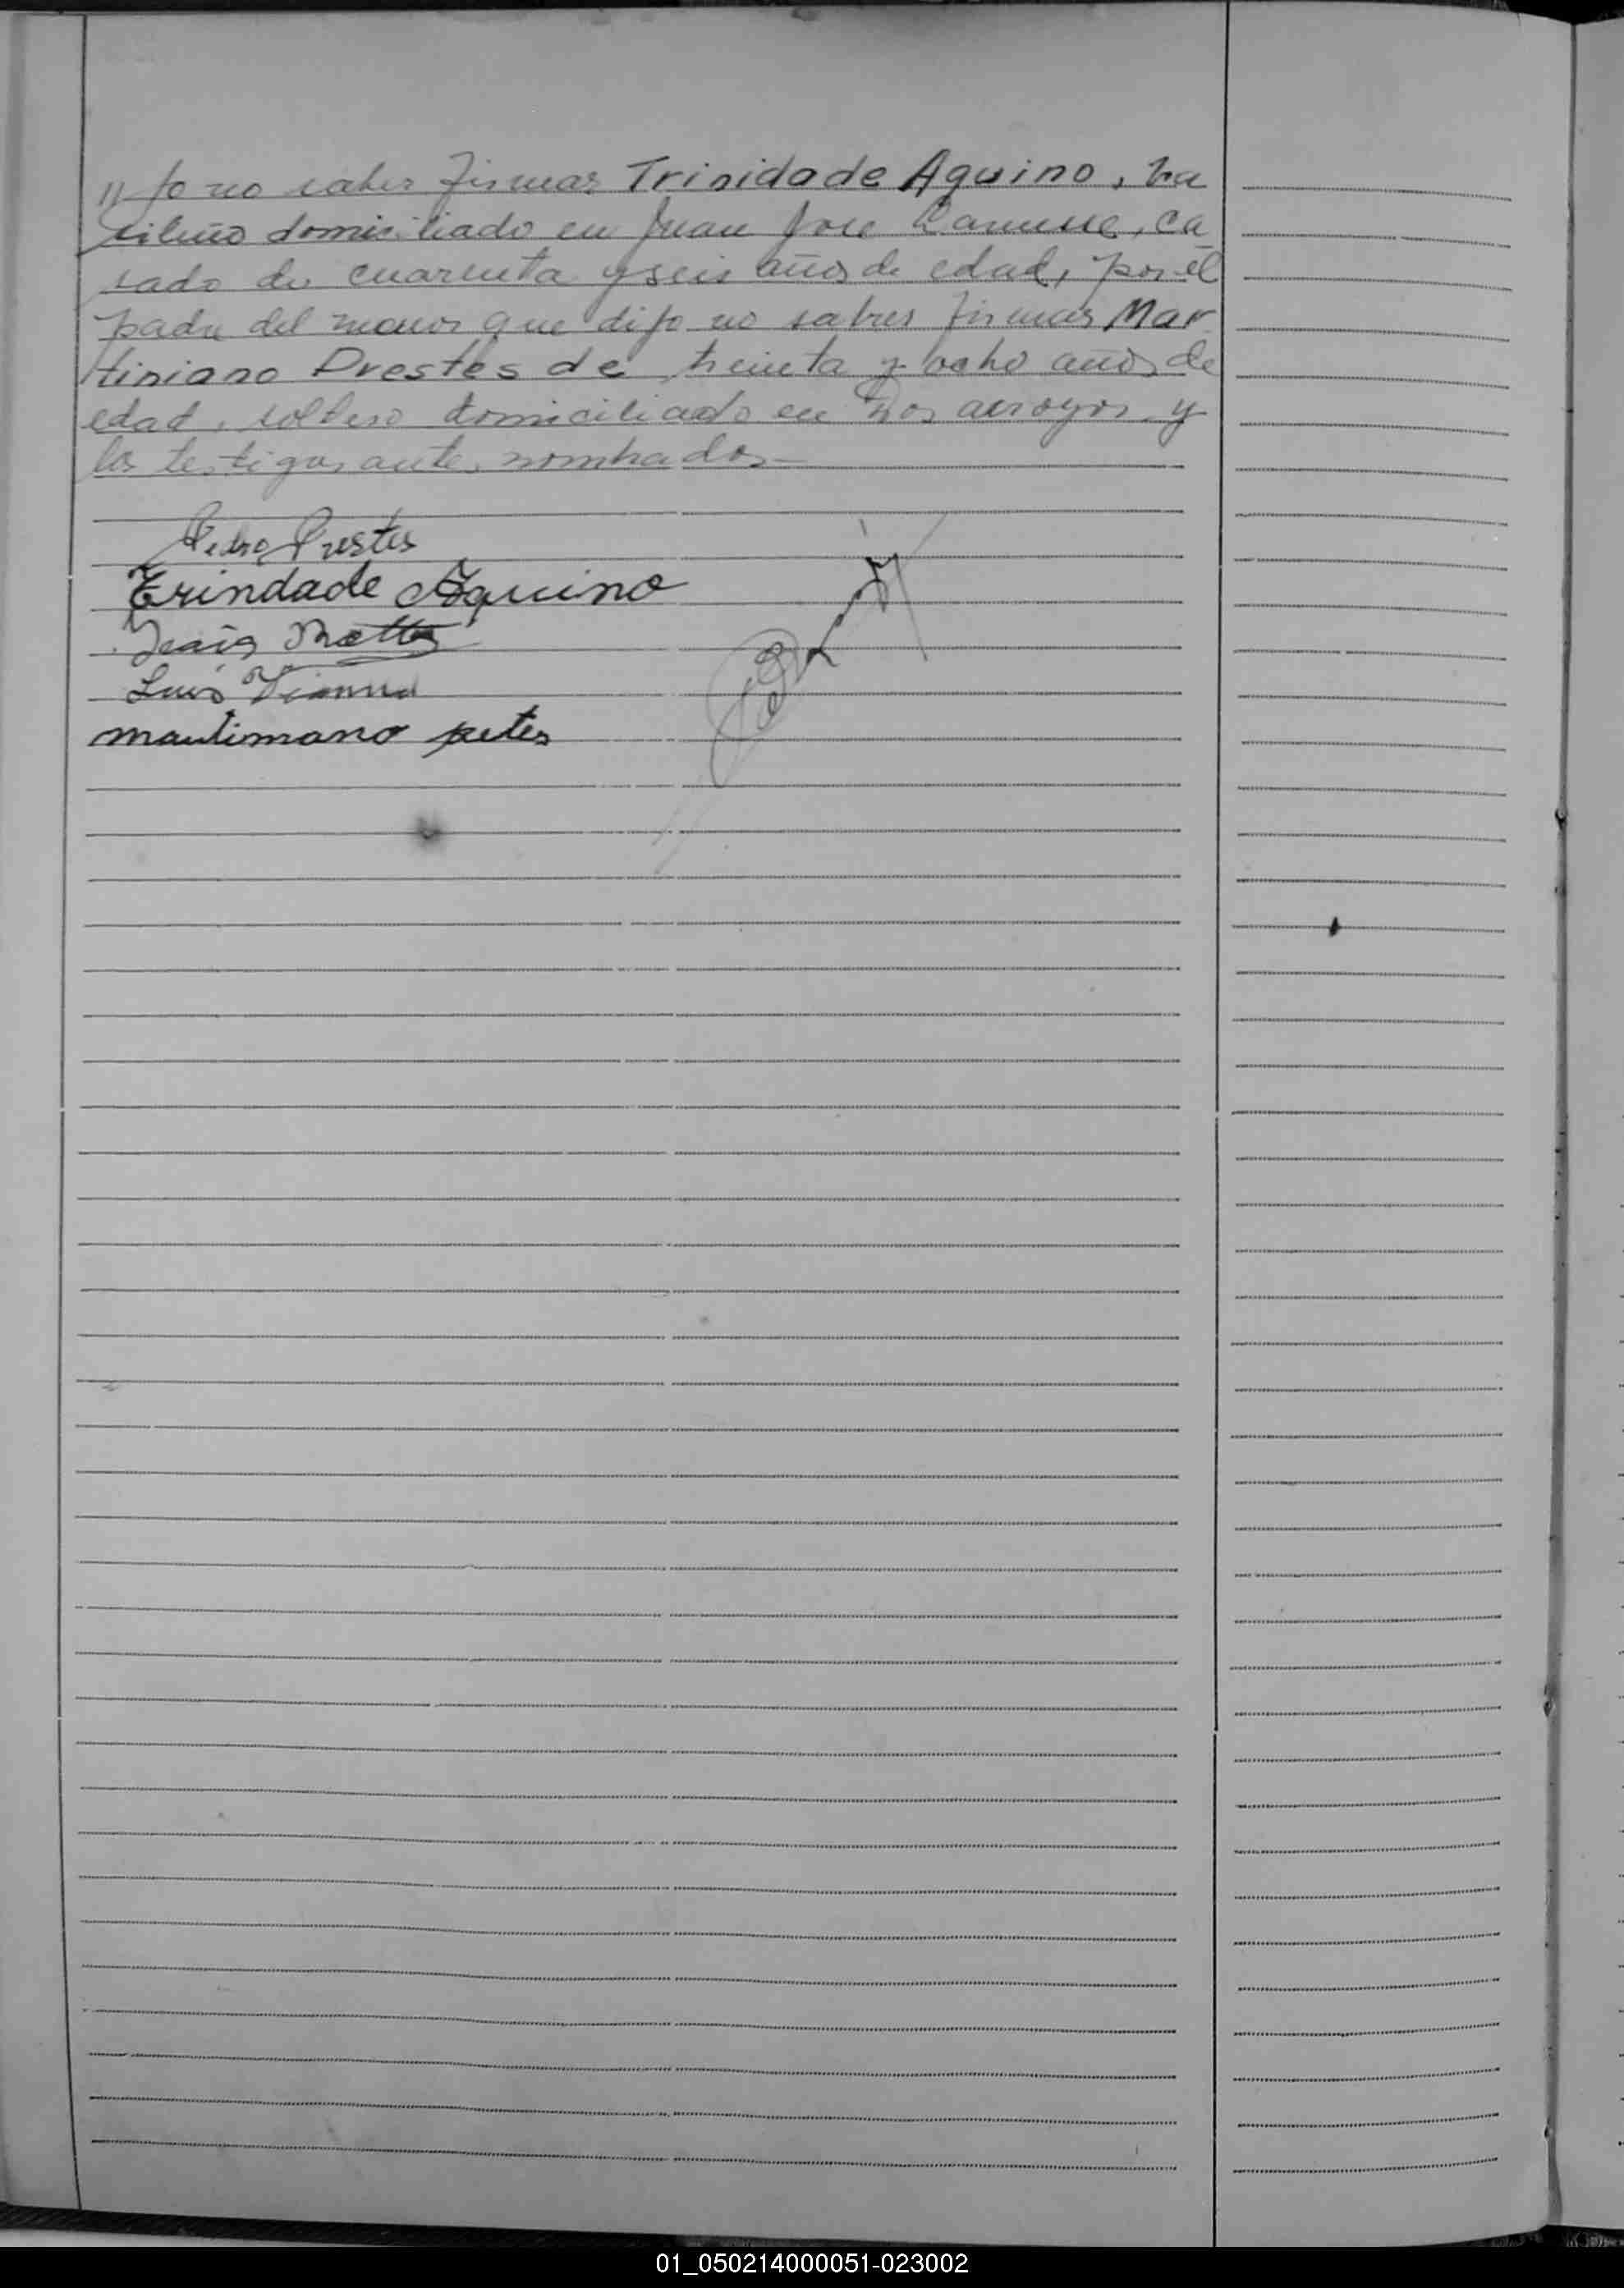 jo no saber firmar Trinidade Aquino, bra
sileño domiciliado en Juan José Lanusse, ca
sado de cuarenta y seis años de edad, por el
padre del menor que dijo no saber firmar Mar
tiniano Prestes de treinta y ocho años de
edad, soltero domiciliado en Dos arroyos y
los testigos antes nombrados—
Pedro Prestes
Trindade Aquino
Luis Vianna
01_050214000051-023002